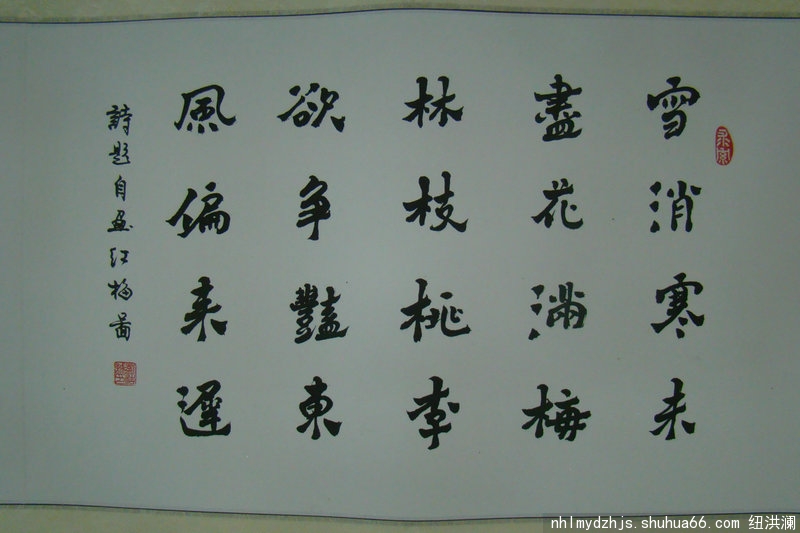 雪消寒未
盡花滿梅
林枝桃李
欲争豔東
風偏来遲
詩題自畫红梅啚
nhlmydzhjs.shuhua66.com 纽洪澜